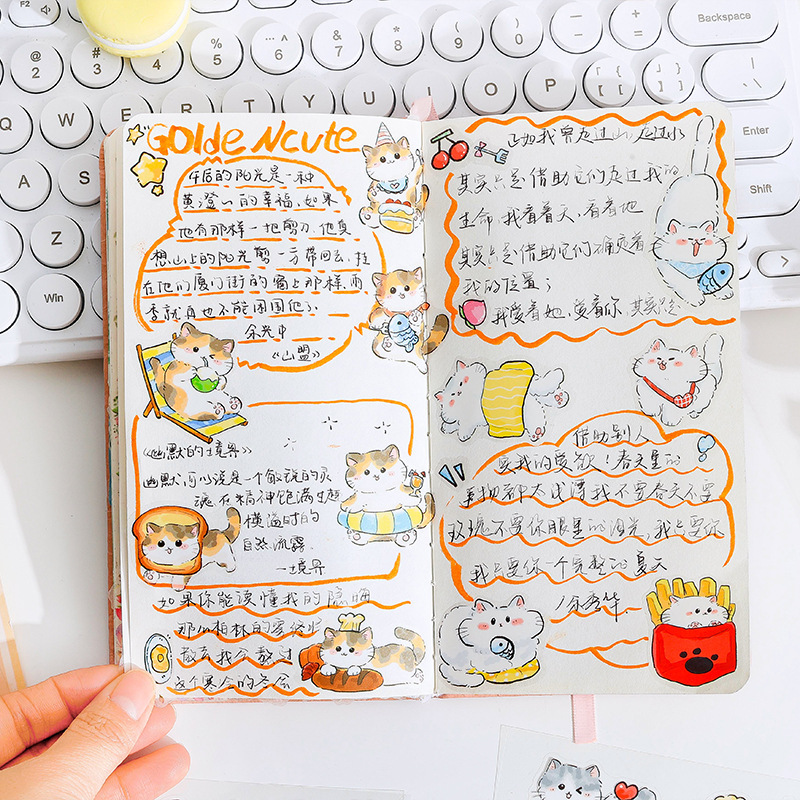 GOlde Ncute
午后的阳光是一种
黄澄澄的幸福,如果
也有那样一把剪刀,他真
想山上的阳光剪一方带回去,挂
在他们厦门街的窗上那样,雨
季就再也不能困围他了
余光中
《山盟》
《幽默的境界》
幽默,可以说是一个敏锐的
在精神饱满
横溢时的
自然流露
—境界
如果你能读懂我的隐晦
那么柏林的
散去我会熬过
这个寒冷的冬
正如我曾走过山,走过水
其实只是借助它们走过我的
生命,我看着天,看着地
其实只是借助它们确定着
我的位置;
我爱着她,爱着你,其实只是
借助别人
实我的爱欲!春天里的
我不要春天不要
玫瑰不要你眼里的泪光,我只要你
我只要你一个完整的夏天
/余秀华
F2
@
2
#
3
$
4
%
5
^
6
&
7
*
8
(
9
)
0
+
=
Backspace
Q
W
E
R
T
Y
U
I
O
P
Enter
Shift
Z
Win